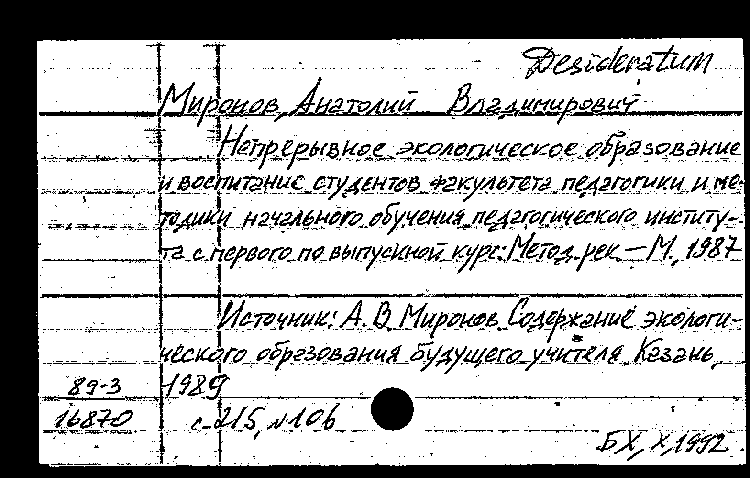 Desideratum
Миронов, Анатолий Владимирович
Непрерывное экологическое образование
и воспитание студентов факультета педагогики и ме-
тодики начального обучения педагогического институ-
та с первого по выпускной курс: Метод. рек. — М., 1987
Источник: А. В. Миронов. Содержание экологи-
ческого образования будущего учителя. Казань,
89-3 1989
16870 с. 215, №106
БХ, X, 1992